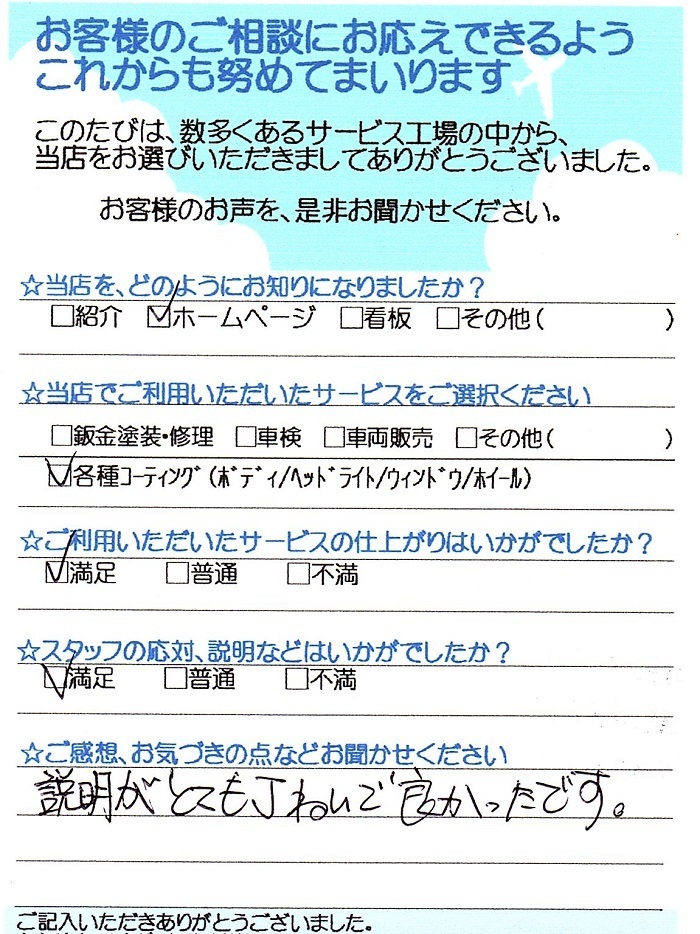 お客様のご相談にお応えできるよう
これからも努めてまいります
このたびは、数多くあるサービス工場の中から、
当店をお選びいただきましてありがとうございました。
お客様のお声を、是非お聞かせください。
☆当店を、どのようにお知りになりましたか？
□紹介 ☑ホームページ □看板 □その他( )
☆当店でご利用いただいたサービスをご選択ください
□鈑金塗装・修理 □車検 □車両販売 □その他( )
☑各種ｺｰﾃｨﾝｸﾞ(ﾎﾞﾃﾞｨ/ﾍｯﾄﾞﾗｲﾄ/ｳｨﾝﾄﾞｳ/ﾎｲｰﾙ)
☆ご利用いただいたサービスの仕上がりはいかがでしたか？
☑満足 □普通 □不満
☆スタッフの応対、説明などはいかがでしたか？
☑満足 □普通 □不満
☆ご感想、お気づきの点などお聞かせください
説明がとても丁ねいで良かったです。
ご記入いただきありがとうございました。